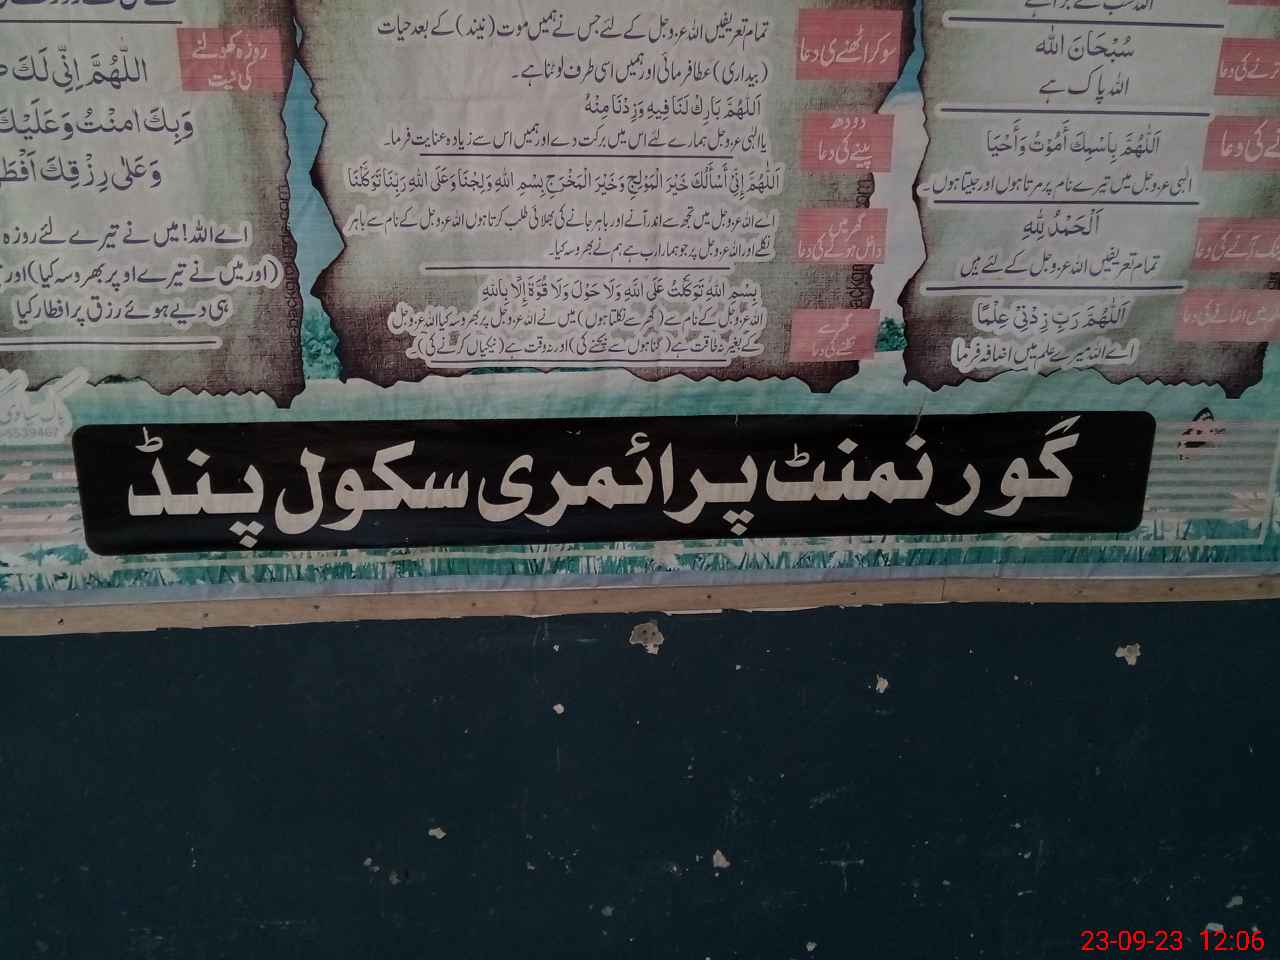 اللہ سب سے بڑا ہے
سُبْحَانَ اللّٰه
اللہ پاک ہے
اَللّٰهُمَّ بِاسْمِكَ أَمُوْتُ وَأَحْيَا
الٰہی عزوجل میں تیرے نام پر مرتا ہوں اور جیتا ہوں۔
اَلْحَمْدُ لِلّٰهِ
تمام تعریفیں اللہ عزوجل کے لئے ہیں
اَللّٰهُمَّ رَبِّ زِدْنِيْ عِلْمًا
اے اللہ میرے علم میں اضافہ فرما
سو کر اٹھنے کی دعا
تمام تعریفیں اللہ عزوجل کے لئے جس نے ہمیں موت (نیند) کے بعد حیات
(بیداری) عطا فرمائی اور ہمیں اسی طرف لوٹنا ہے۔
دودھ
پینے کی دعا
اَللّٰهُمَّ بَارِكْ لَنَا فِيهِ وَزِدْنَا مِنْهُ
یا الٰہی عزوجل ہمارے لئے اس میں برکت دے اور ہمیں اس سے زیادہ عنایت فرما۔
گھر میں
داخل ہونے کی دعا
اَللّٰهُمَّ إِنِّي أَسْأَلُكَ خَيْرَ الْمَوْلِجِ وَخَيْرَ الْمَخْرَجِ بِسْمِ اللهِ وَلَجْنَا وَعَلَى اللهِ رَبِّنَا تَوَكَّلْنَا
اے اللہ عزوجل میں تجھ سے اندر آنے اور باہر جانے کی بھلائی طلب کرتا ہوں اللہ عزوجل کے نام سے باہر
نکلے اور اللہ عزوجل پر جو ہمارا رب ہے ہم نے بھروسہ کیا۔
گھر سے
نکلنے کی دعا
بِسْمِ اللهِ تَوَكَّلْتُ عَلَى اللهِ وَلَا حَوْلَ وَلَا قُوَّةَ إِلَّا بِاللهِ
اللہ عزوجل کے نام سے (گھر سے نکلتا ہوں) میں نے اللہ عزوجل پر بھروسہ کیا اللہ عزوجل
کے بغیر نہ طاقت ہے (گناہوں سے بچنے کی) اور نہ قوت ہے (نیکیاں کرنے کی)
روزہ کھولنے
کی نیت
اَللّٰهُمَّ اِنِّي لَكَ
وَبِكَ اٰمَنْتُ وَعَلَيْكَ
وَعَلٰى رِزْقِكَ اَفْطَ
اے اللہ! میں نے تیرے لئے روزہ
(اور میں نے تیرے اوپر بھروسہ کیا) اور
ہی دیے ہوئے رزق پر افطار کیا
گورنمنٹ پرائمری سکول پنڈ
23-09-23 12:06